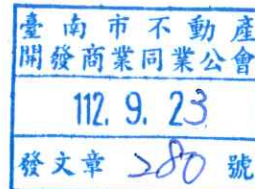 臺南市不動產
開發商業同業公會
112. 9. 23
發文章 280 號